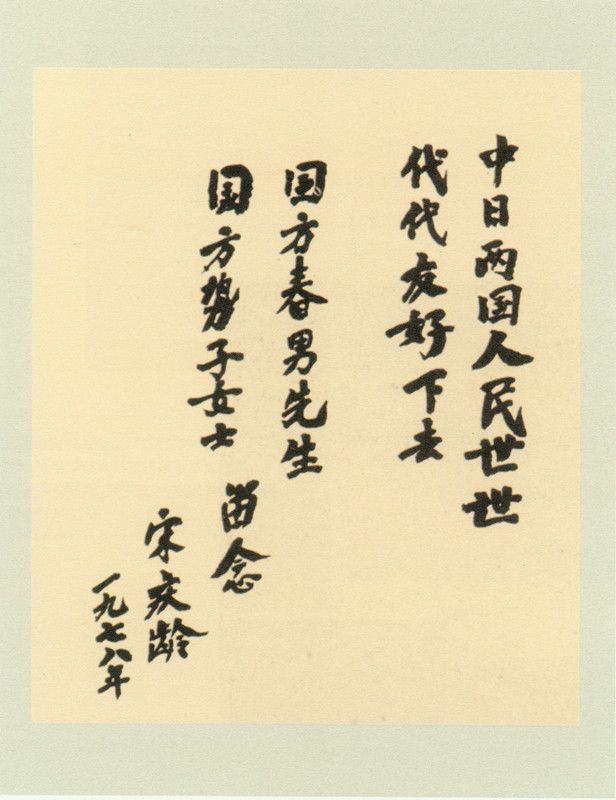 中日两国人民世世
代代友好下去
国方春男先生
国方势子女士 留念
宋庆龄
一九七八年